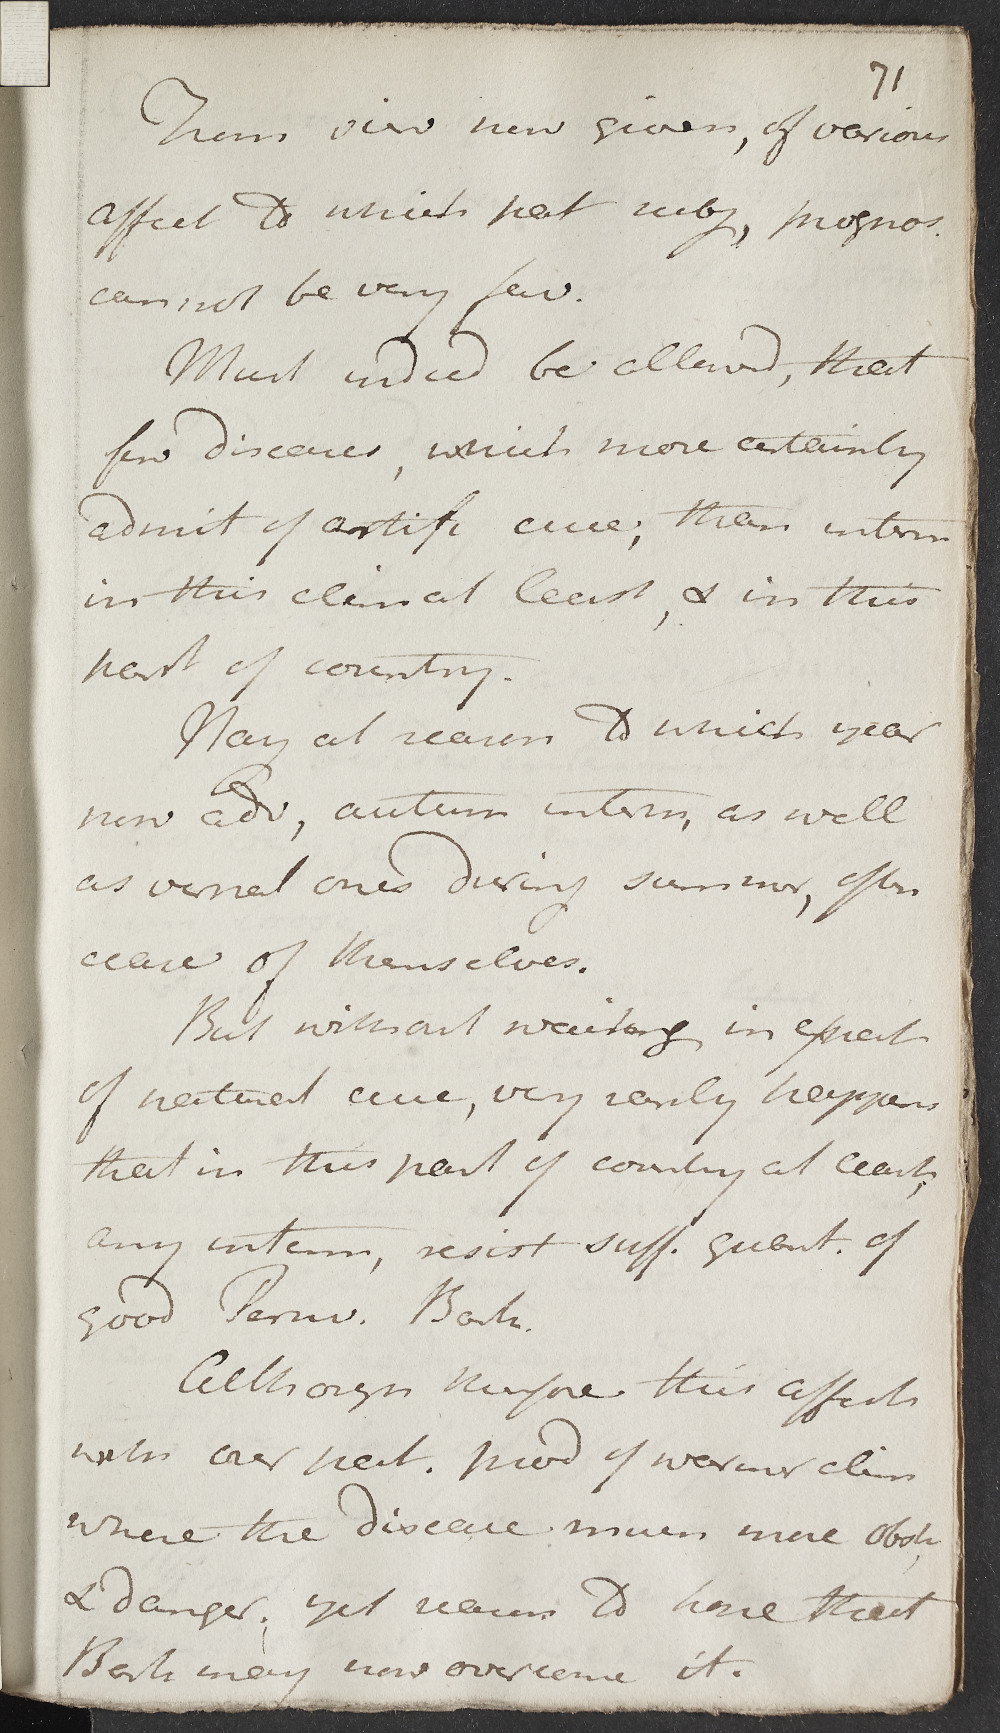 71
From view now given, of various
affect to which pat subj, prognos.
cannot be very fav.
Must indeed be allowed, that
few diseases, which more certainly
admit of artifi cure, than interm
in this clim at least, & in this
part of country.
Nay at season to which year
now adv, autum interm, as well
as vernal ones during summer, often
cease of themselves.
But without waiting in expect
of natural cure, very rarely happens
that in this part of country at least,
any interm, resist suff. quant. of
good Peruv. Bark.
Although therefore this affect
with our pat. prod of warmer clim
where the disease much more obst,
& danger, yet reason to hope that
Bark may now overcome it.